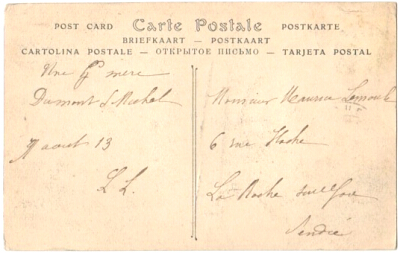 POST CARD Carte Postale POSTKARTE
BRIEFKAART — POSTKAART
CARTOLINA POSTALE — ОТКРЫТОЕ ПИСЬМО — TARJETA POSTAL
Une mere
Dumont St Michel
7 aout 13
L L.
Monsieur Maurice
6 rue Hoche
La Roche sur Yon
Vendée